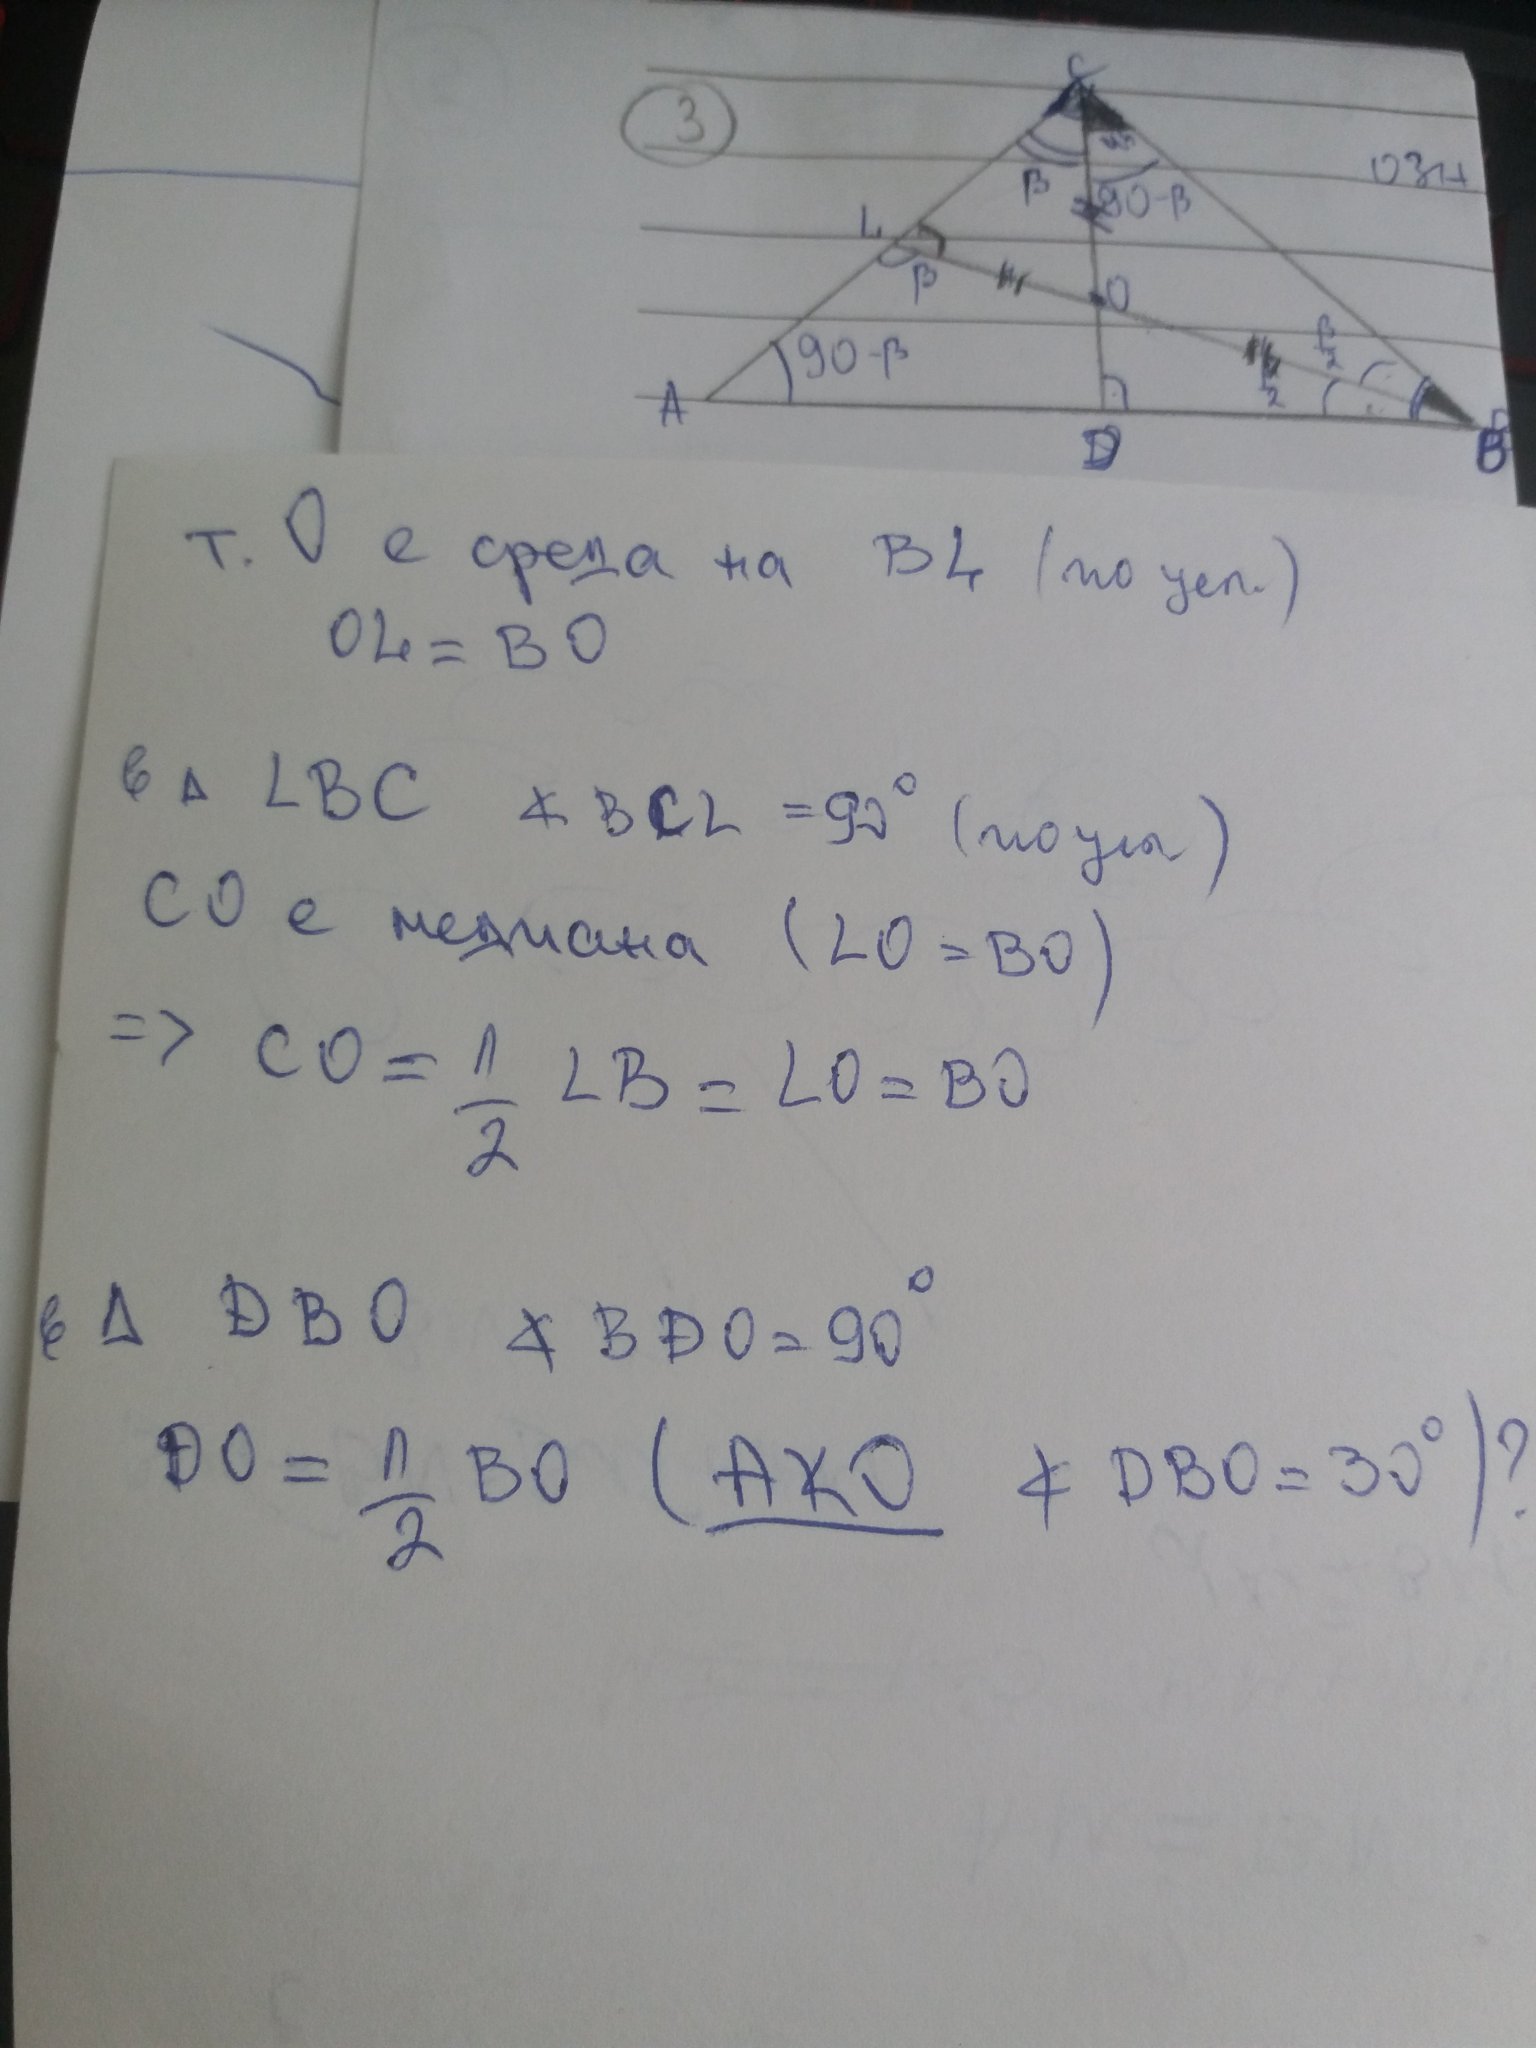 3
C
β
90-β
L
β
O
β/2
β/2
90-β
A
D
B
т. O е среда на BL (по усл.)
OL = BO
в Δ LBC ∢ BCL = 90° (по усл)
CO е медиана (LO = BO)
=> CO = 1/2 LB = LO = BO
в Δ DBO ∢ BDO = 90°
DO = 1/2 BO (АКО ∢ DBO = 30°)?